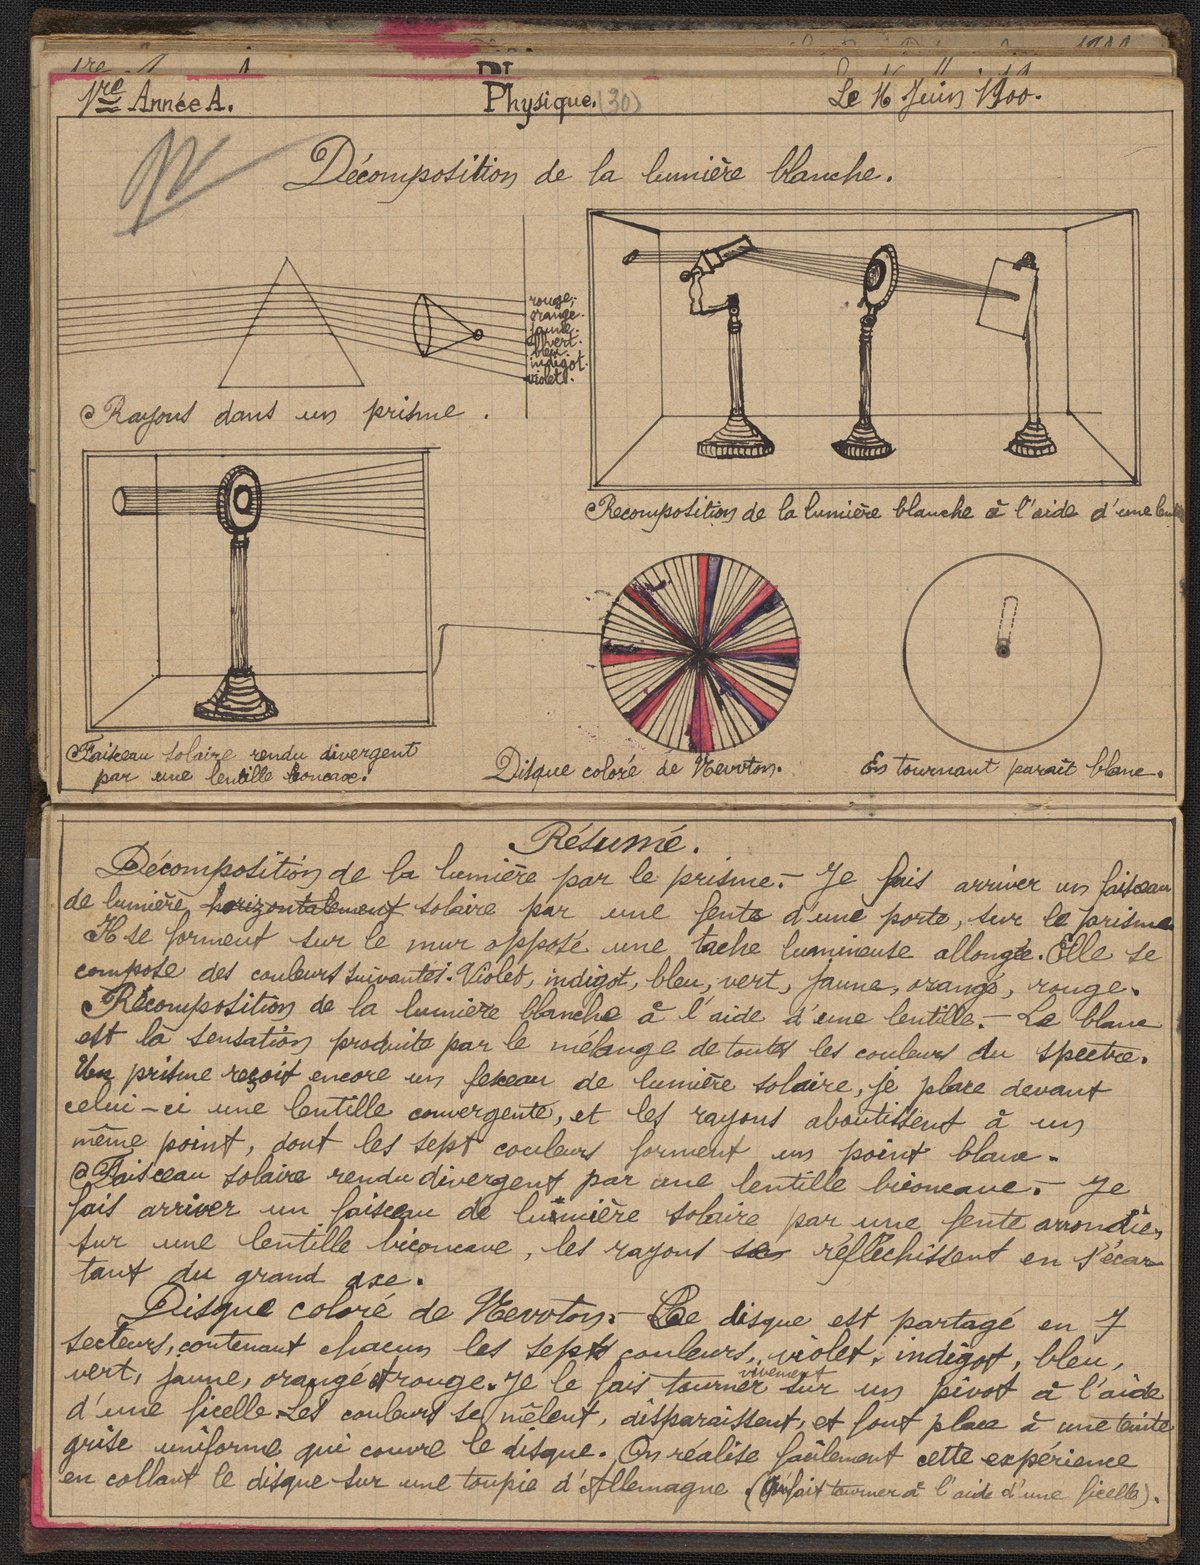 1re Année A.
Physique. (30)
Le 16 Juin 1900.
Décomposition de la lumière blanche.
rouge,
orange.
jaune.
vert.
bleu.
indigot.
violet.
Rayons dans un prisme.
Recomposition de la lumière blanche à l'aide d'une
Faisceau solaire rendu divergent
par une lentille concave.
Disque coloré de Nevvton.
En tournant parait blanc.
Résumé.
Décomposition de la lumière par le prisme.- Je fais arriver un faisceau
de lumière horizontalement solaire par une fente d'une porte, sur le prisme.
Il se forment sur le mur opposé une tache lumineuse allongée. Elle se
compose des couleurs suivantes. Violet, indigot, bleu, vert, jaune, orangé, rouge.
Récomposition de la lumière blanche à l'aide d'une lentille.- Le blanc
est la sensation produite par le mélange de toutes les couleurs du spectre.
Un prisme reçoit encore un feseau de lumière solaire, je place devant
celui-ci une lentille convergente, et les rayons aboutissent à un
même point, dont les sept couleurs forment un point blanc.
Faisceau solaire rendu divergent par une lentille biconcave.- Je
fais arriver un faisceau de lumière solaire par une fente arrondie,
sur une lentille biconcave, les rayons se réfléchissent en s'écar-
tant du grand axe.
Disque coloré de Nevvton.- Le disque est partagé en 7
secteurs, contenant chacun les sept couleurs, violet, indigot, bleu,
vert, jaune, orangé et rouge. Je le fais tourner vivement sur un pivot à l'aide
d'une ficelle. Les couleurs se mêlent, disparaissent, et font place à une teinte
grise uniforme qui couvre le disque. On réalise facilement cette expérience
en collant le disque sur une toupie d'Allemagne. (Qu'fait tourner à l'aide d'une ficelle).